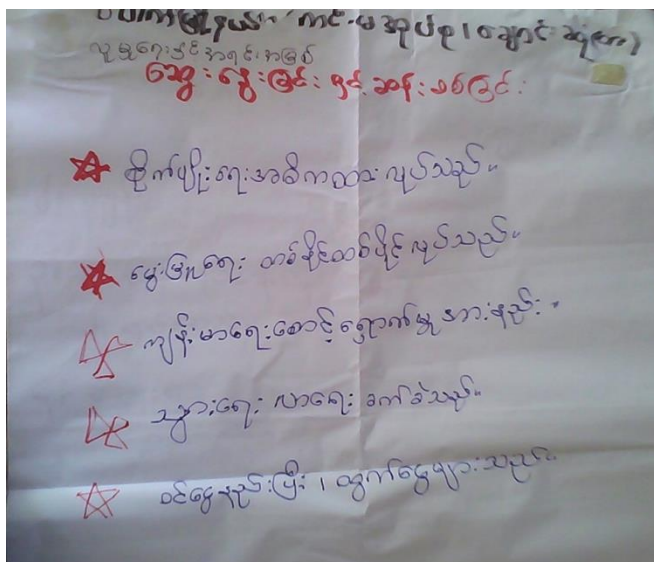 လူမှုရေးနှင့်အရင်းအမြစ်
ဆွေးနွေးခြင်း နှင့် ဆန်းစစ်ခြင်း
စိုက်ပျိုးရေးအဓိကထားလုပ်သည်။
မွေးမြူရေး တစ်နိုင်တစ်ပိုင်လုပ်သည်။
ကျန်းမာရေးစောင့်ရှောက်မှုအားနည်း။
သွားရေး လာရေး ခက်ခဲသည်။
ဝင်ငွေနည်းပြီး၊ ထွက်ငွေများသည်။